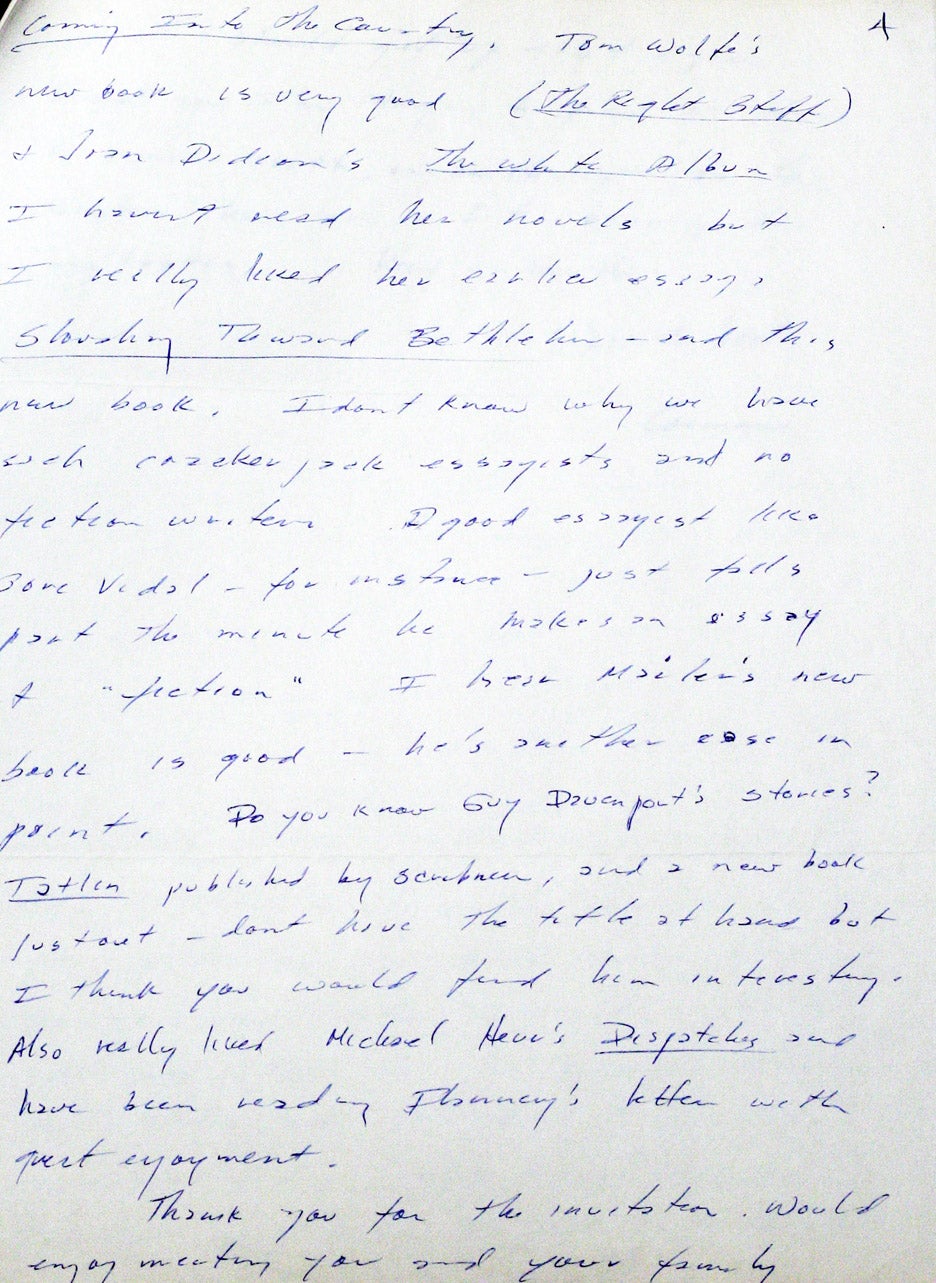 4
Coming Into the Country. Tom Wolfe's
new book is very good (The Right Stuff)
& Joan Didion's The White Album
I havent read her novels but
I really liked her earlier essays
Slouching Toward Bethlehem - and this
new book. I dont know why we have
such crackerjack essayists and no
fiction writers. A good essayist like
Gore Vidal - for instance - just falls
part the minute he makes an essay
"fiction" I hear Mailer's new
book is good - he's another case in
point. Do you know Guy Davenport's stories?
Tatlin published by Scribners, and a new book
just out - dont have the title at hand but
I think you would find him interesting.
Also really liked Michael Herr's Dispatches and
have been reading Flannery's letters with
great enjoyment.
Thank you for the invitation. Would
enjoy meeting you and your family